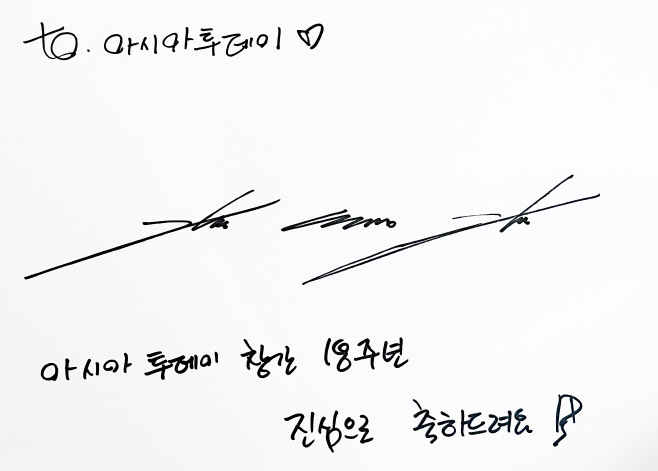 to. 아시아투데이 ♡
아시아 투데이 창간 18주년
진심으로 축하드려요